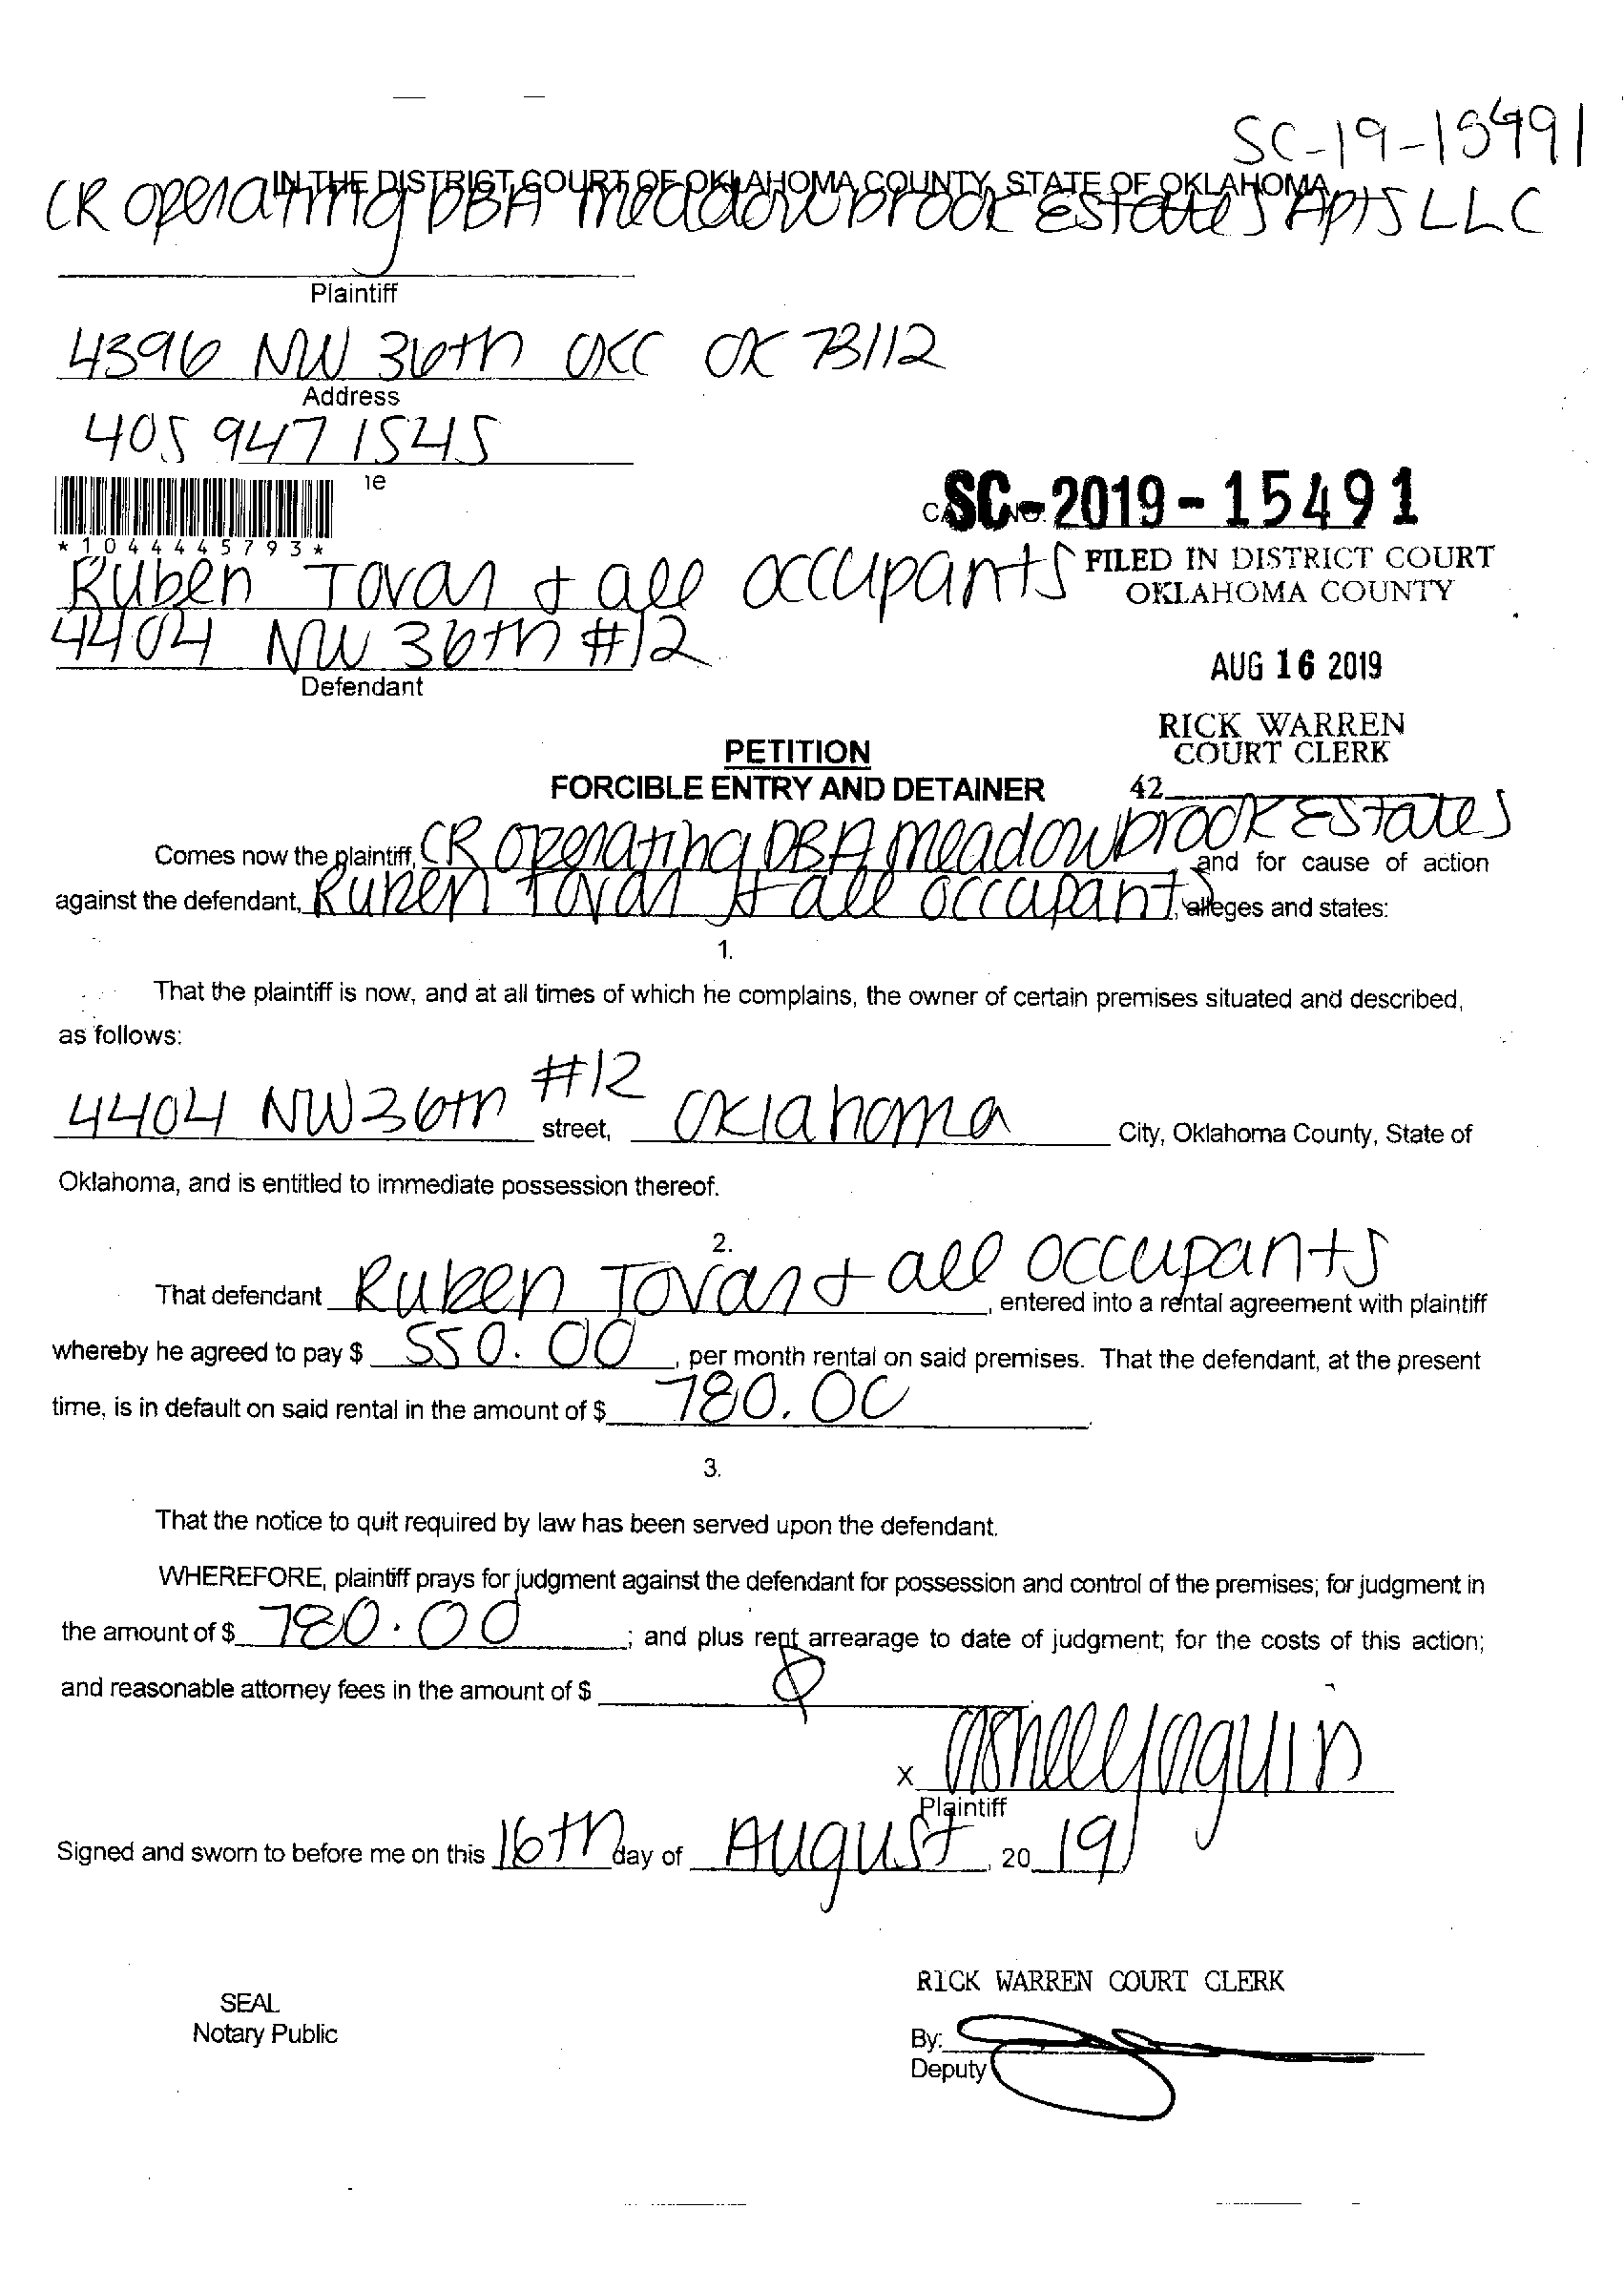 SC-19-15491
IN THE DISTRICT COURT OF OKLAHOMA COUNTY, STATE OF OKLAHOMA
CR Operating DBA Meadowbrook Estates Apts LLC
Plaintiff
4396 NW 36th OKC OK 73112
Address
405 947 1545
ne
SC-2019-15491
*1044445793*
FILED IN DISTRICT COURT
OKLAHOMA COUNTY
Ruben Tovar + all occupants
4404 NW 36th #12
Defendant
AUG 16 2019
RICK WARREN
COURT CLERK
42
PETITION
FORCIBLE ENTRY AND DETAINER
Comes now the plaintiff, CR Operating DBA Meadowbrook Estates and for cause of action
against the defendant, Ruben Tovar + all occupants, alleges and states:
1.
That the plaintiff is now, and at all times of which he complains, the owner of certain premises situated and described,
as follows:
4404 NW 36th #12 street, Oklahoma City, Oklahoma County, State of
Oklahoma, and is entitled to immediate possession thereof.
2.
That defendant Ruben Tovar + all occupants, entered into a rental agreement with plaintiff
whereby he agreed to pay $ 550.00, per month rental on said premises. That the defendant, at the present
time, is in default on said rental in the amount of $ 780.00.
3.
That the notice to quit required by law has been served upon the defendant.
WHEREFORE, plaintiff prays for judgment against the defendant for possession and control of the premises; for judgment in
the amount of $ 780.00; and plus rent arrearage to date of judgment; for the costs of this action;
and reasonable attorney fees in the amount of $
X
Plaintiff
Signed and sworn to before me on this 16th day of August, 2019
SEAL
Notary Public
RICK WARREN COURT CLERK
By:
Deputy